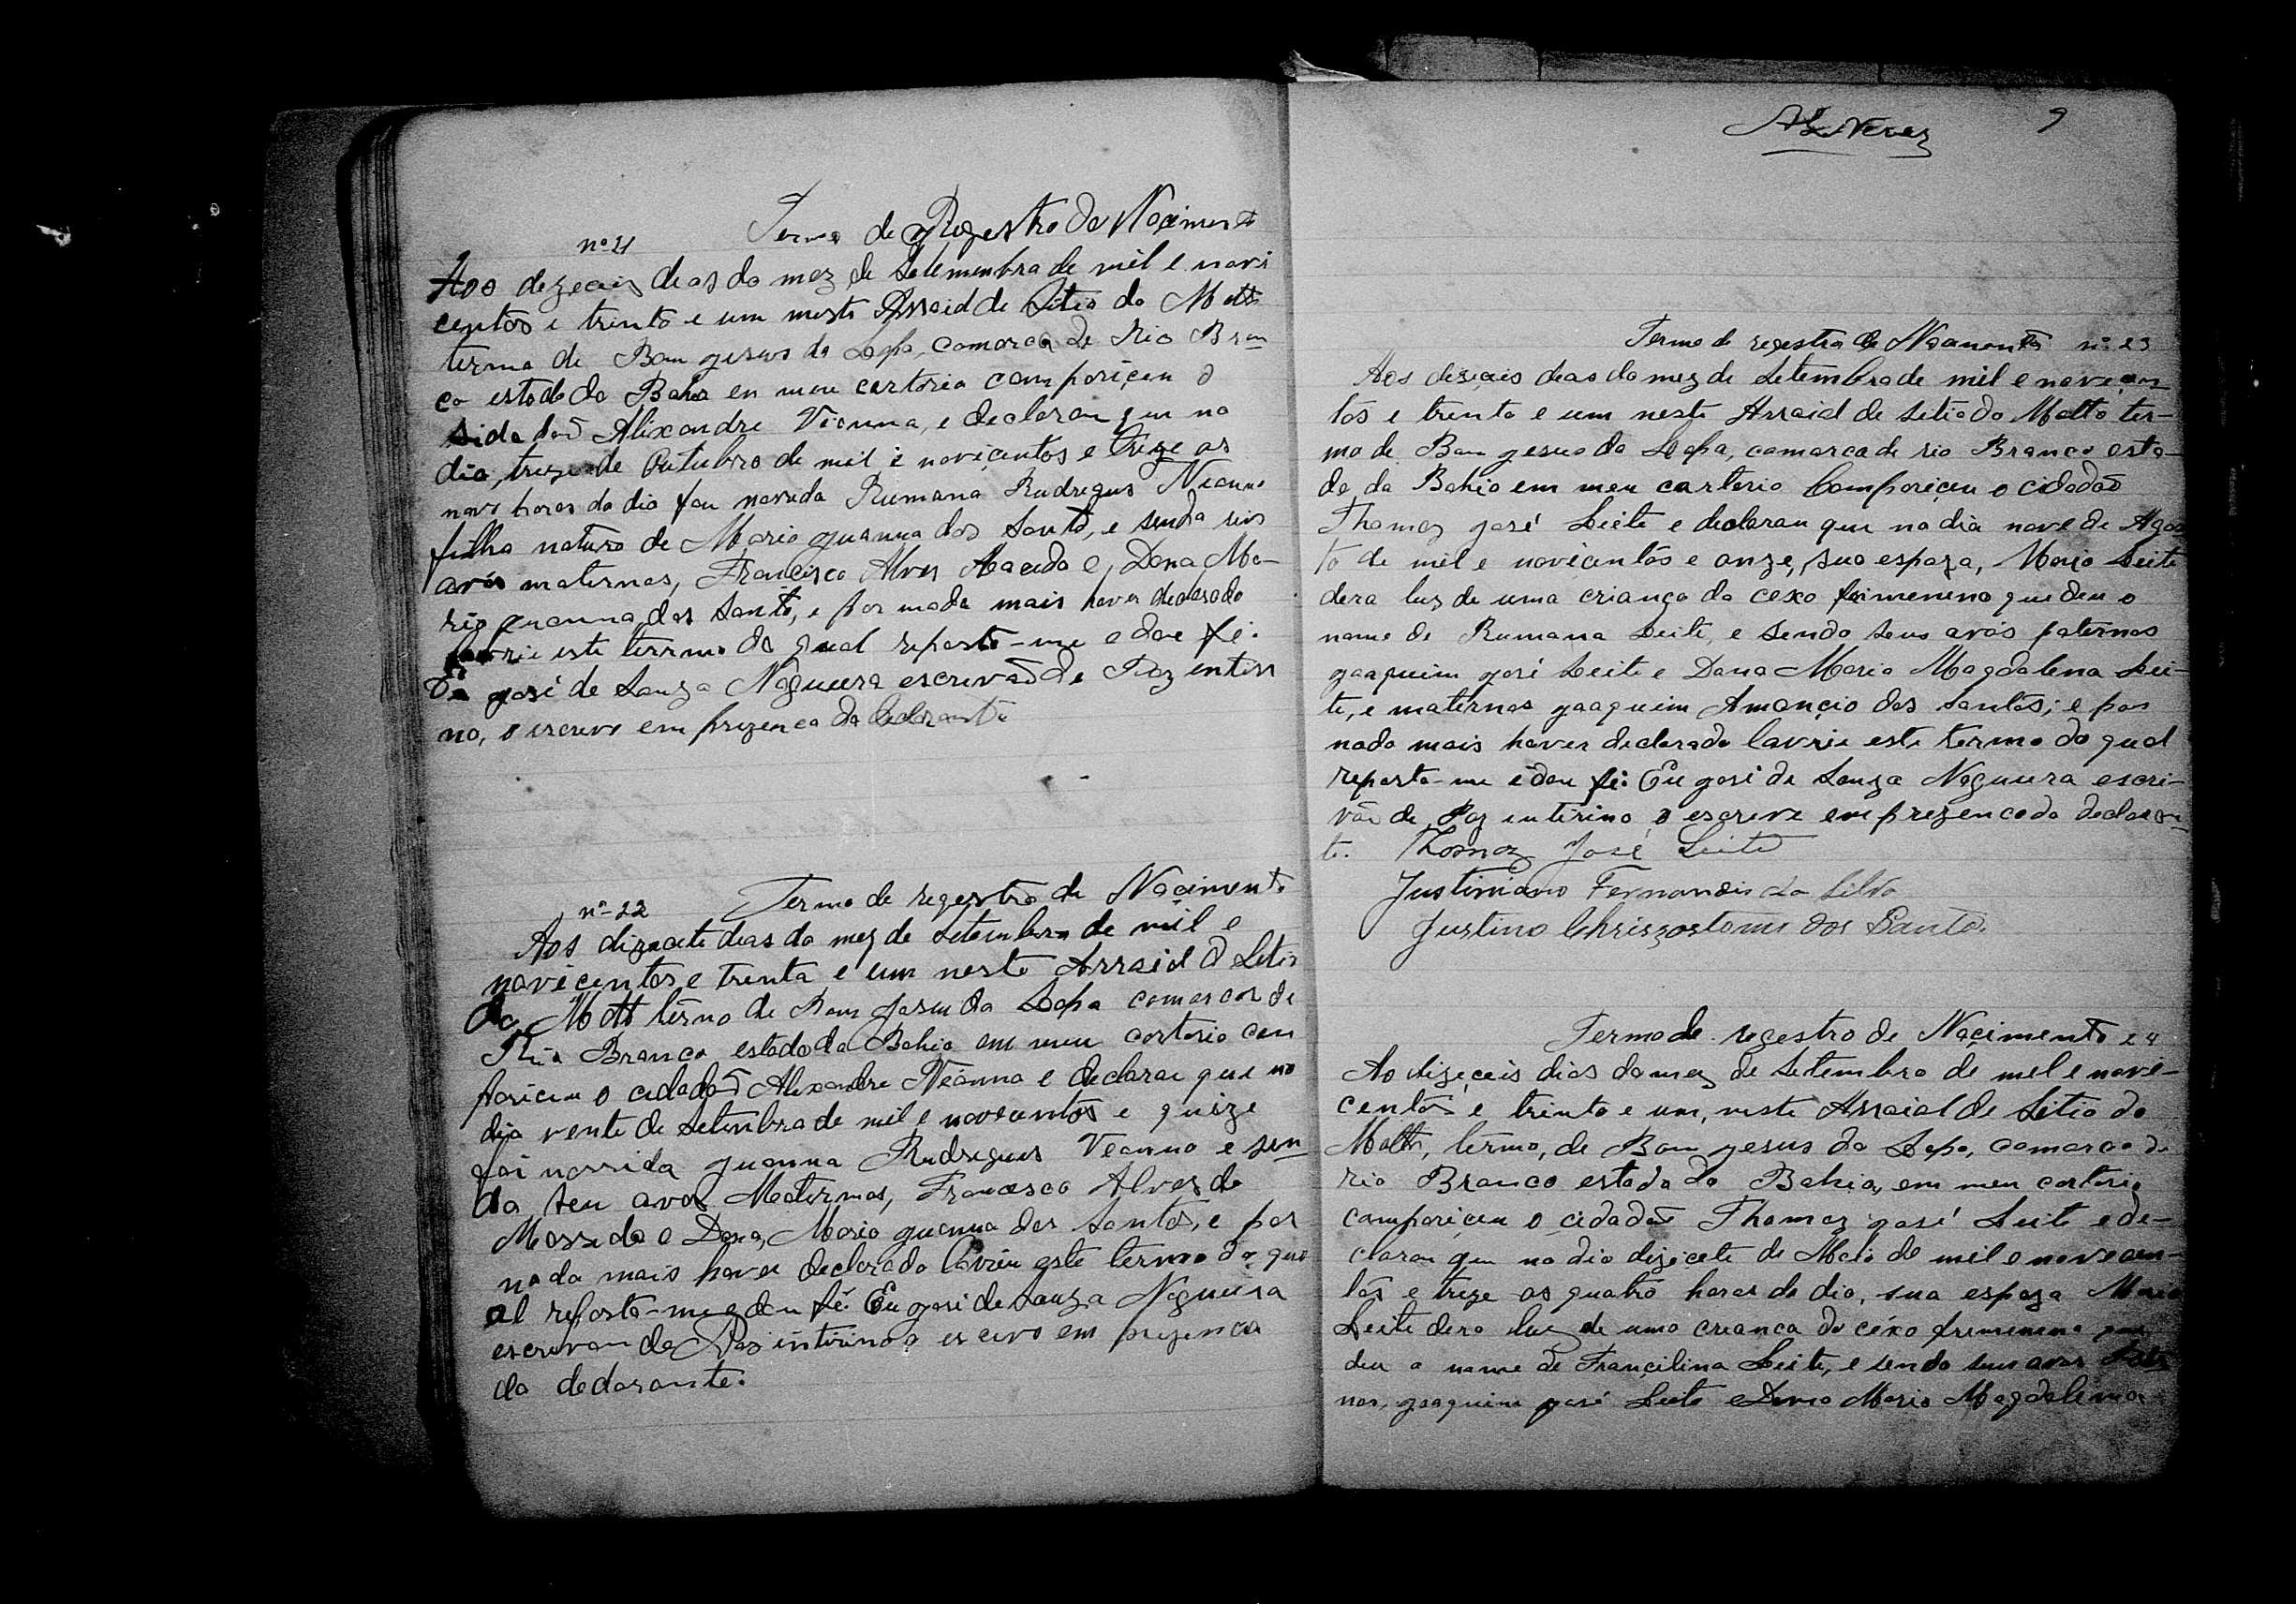 Termo de Regestro de Nacimento
nº 21
Aos dezeceis dias do mez de Setembro de mil e novi
centos e trinta e um neste Arraial de Sitio do Matto
termo de Bom gesus da Lapa, comarca de Rio Bran
co estado da Bahia en meu cartorio compariçeu o
sidadaõ Alixandre Vianna, e declarou que no
dia, treze de Outubro de mil e noviçentos e treze as
nove horas do dia fou nacida Rumana Rudrigues Vianna
filha natura de Maria guanna dos Santo, e sendo seus
avós maternos, Françisco Alves Macedo e, Dona Ma-
ria guanna dos Santo, e por mada mais haver declarado
lavrie este termo do qual reporto-me e dou fé.
Eu gosé de Souza Nogueira escrevaõ de Paz entiri
no, o escrevo em prezenca do declarante
Termo de regestro de Naçimento
nº-22
Aos dizacete dias do mez de Setembro de mil e
novicentos e trenta e um neste Arraial d Setio
do Matto têrmo de Bom Jasus da Lapa comarcar de
Rio Branco estado da Bahia em meu cartorio com
pariceu o cidadaõ Alixandre Veanna e declarou que no
dia vente de Setenbro de mil e novecentos e quize
foi nassida guanna Rudrigues Veanna e sen
do seu avos Maternos, Francesco Alves de
Massedo e Dona, Maria guanna dos Santos, e por
nada mais haver declarado lavriu este termo do qua
al reporto-me e dou fé. Eu gosi de Souza Nogueira
escrevan de Pas intirino o escrevo em prezenca
do declarante.
9
Termo de regestro de Nacimento nº 23
Aos dizeçeis dias do mez de Setembro de mil e noveçen
tos e trenta e um neste Arraial de Setio do Matto ter-
mo de Bom gesus da Lapa, comarca de rio Branco esta-
do da Bahia em meu cartorio Compariçeu o cidadaõ
Thomaz gosé Leite e declarou que no dia nove de Agos
to de mil e noviçentos e onze, sua espoza, Maria Leite
dera luz de uma criança do cexo feimeneno que deu o
name de Rumana Leite, e sendo seus avós paternos
goaquim gosé Leite e Dona Maria Magdalena Lei-
te, e maternos goaquim Amançio dos Santos; e por
nada mais haver declarado lavrie este termo do qual
reporto-me e dou fé. Eu gosé de Souza Nogueira escri-
vão de Paz intirino, o escreve em prezenca do declaran-
te. Thomaz José Leite
Justiniano Fernandis da Silva
Justino Chriszostomo dos Santo.
Termo de regestro de Naçimento 24
Ao dizeçeis dias do mez de Setembro de mel e nove-
centos e trinta e um, neste Arraial de Sitio do
Matto, têrmo, de Bom gesus da Lapa, comarca de
rio Branco estado da Bahia, em meu cartorio
compariçeu o cidadaõ Thomaz gosé Leite e de-
clarou que no dia dizecete de Maio de mil e novecen-
tos e treze as quatro horas do dia, sua espoza Maria
Leite dera luz de uma creanca do céxo fremenino que
deu o name de Françilina Leite, e sendo seus avos Pater
nos, goaquim gosé Leite e Dona Maria Magdalena